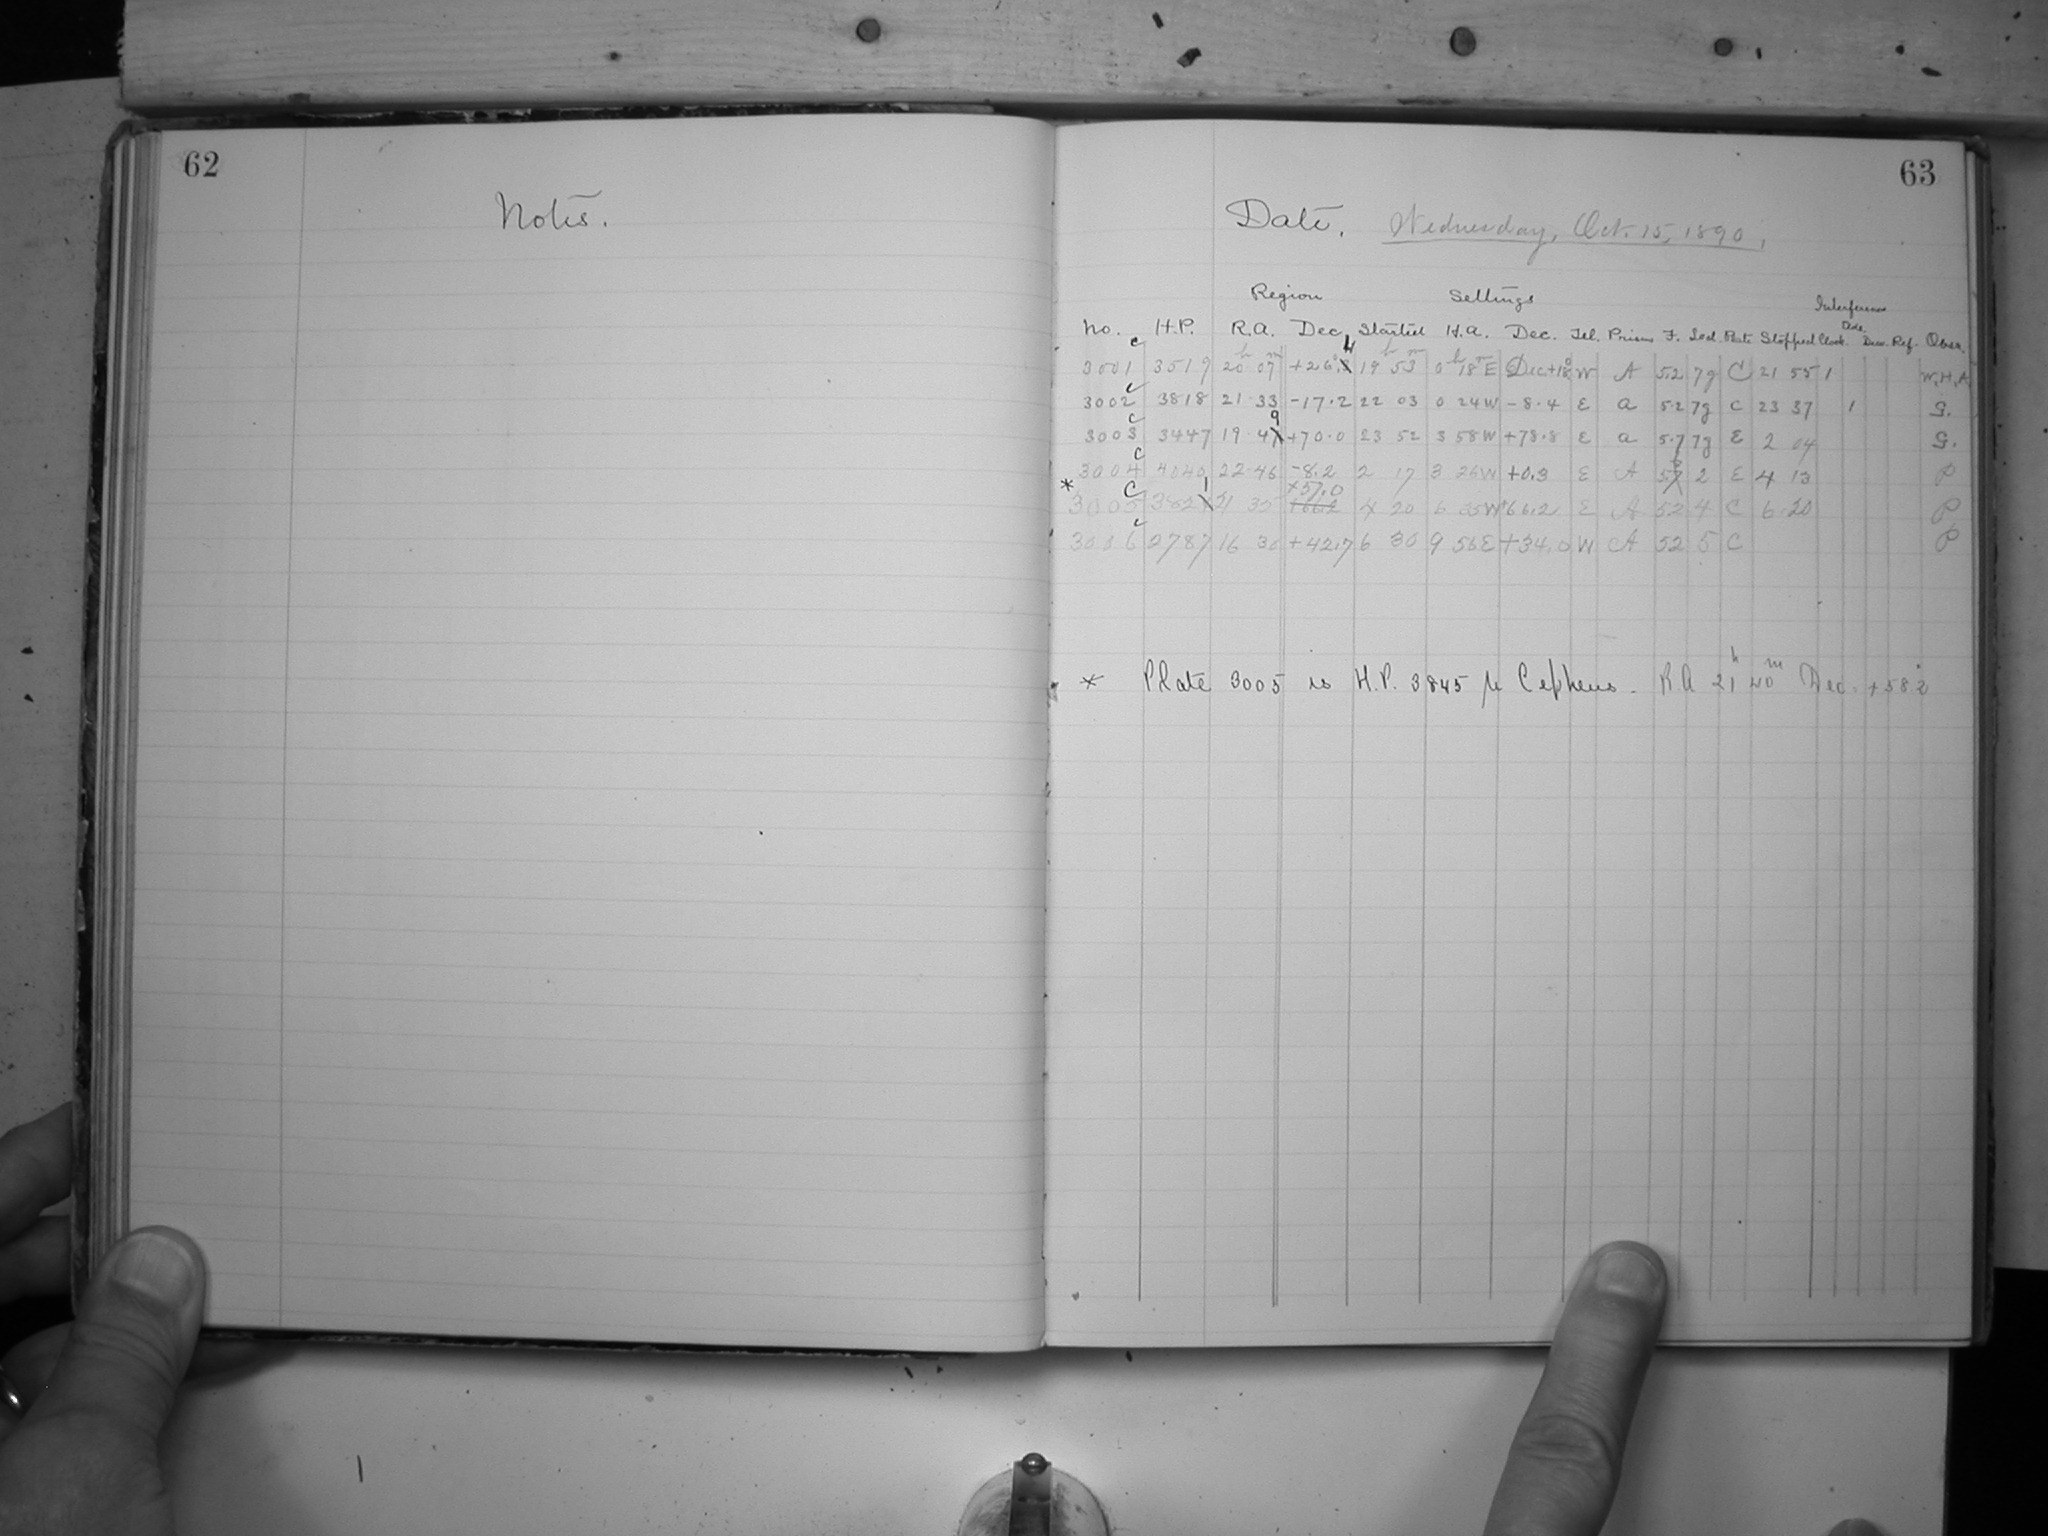 62
Notes.
63
Date. Wednesday, Oct. 15, 1890.
Region Settings Interference
No. H.P. R.A. Dec. Started H.A. Dec. Tel. Prism F. Sed. Plate Stopped Clock Dec. Ref. Obsr.
C 3001 3519 20h 07m +26. 4 19h 53m 0h 18m E Dec +18° W A 52 7g C 21 55 1 W.H.A.
C 3002 3818 21 33 -17.2 22 03 0 24W -8.4 E a 52 7g C 23 37 1 G.
C 3003 3447 19 49 +70.0 23 52 3 58W +78.8 E a 5.7 7g E 2 04 G.
C 3004 4040 22 46 -8.2 2 17 3 26W +0.3 E A 2 E 4 13 P
* C 3005 3821 21 35 +57.0 +66.2 4 20 6 35W +66.2 E A 52 4 C 6 20 P
C 3006 2787 16 30 +42.7 6 30 9 56E +34.0 W A 52 5 C P
* Plate 3005 is H.P. 3845 μ Cepheus. R A 21h 40m Dec. +58°.2